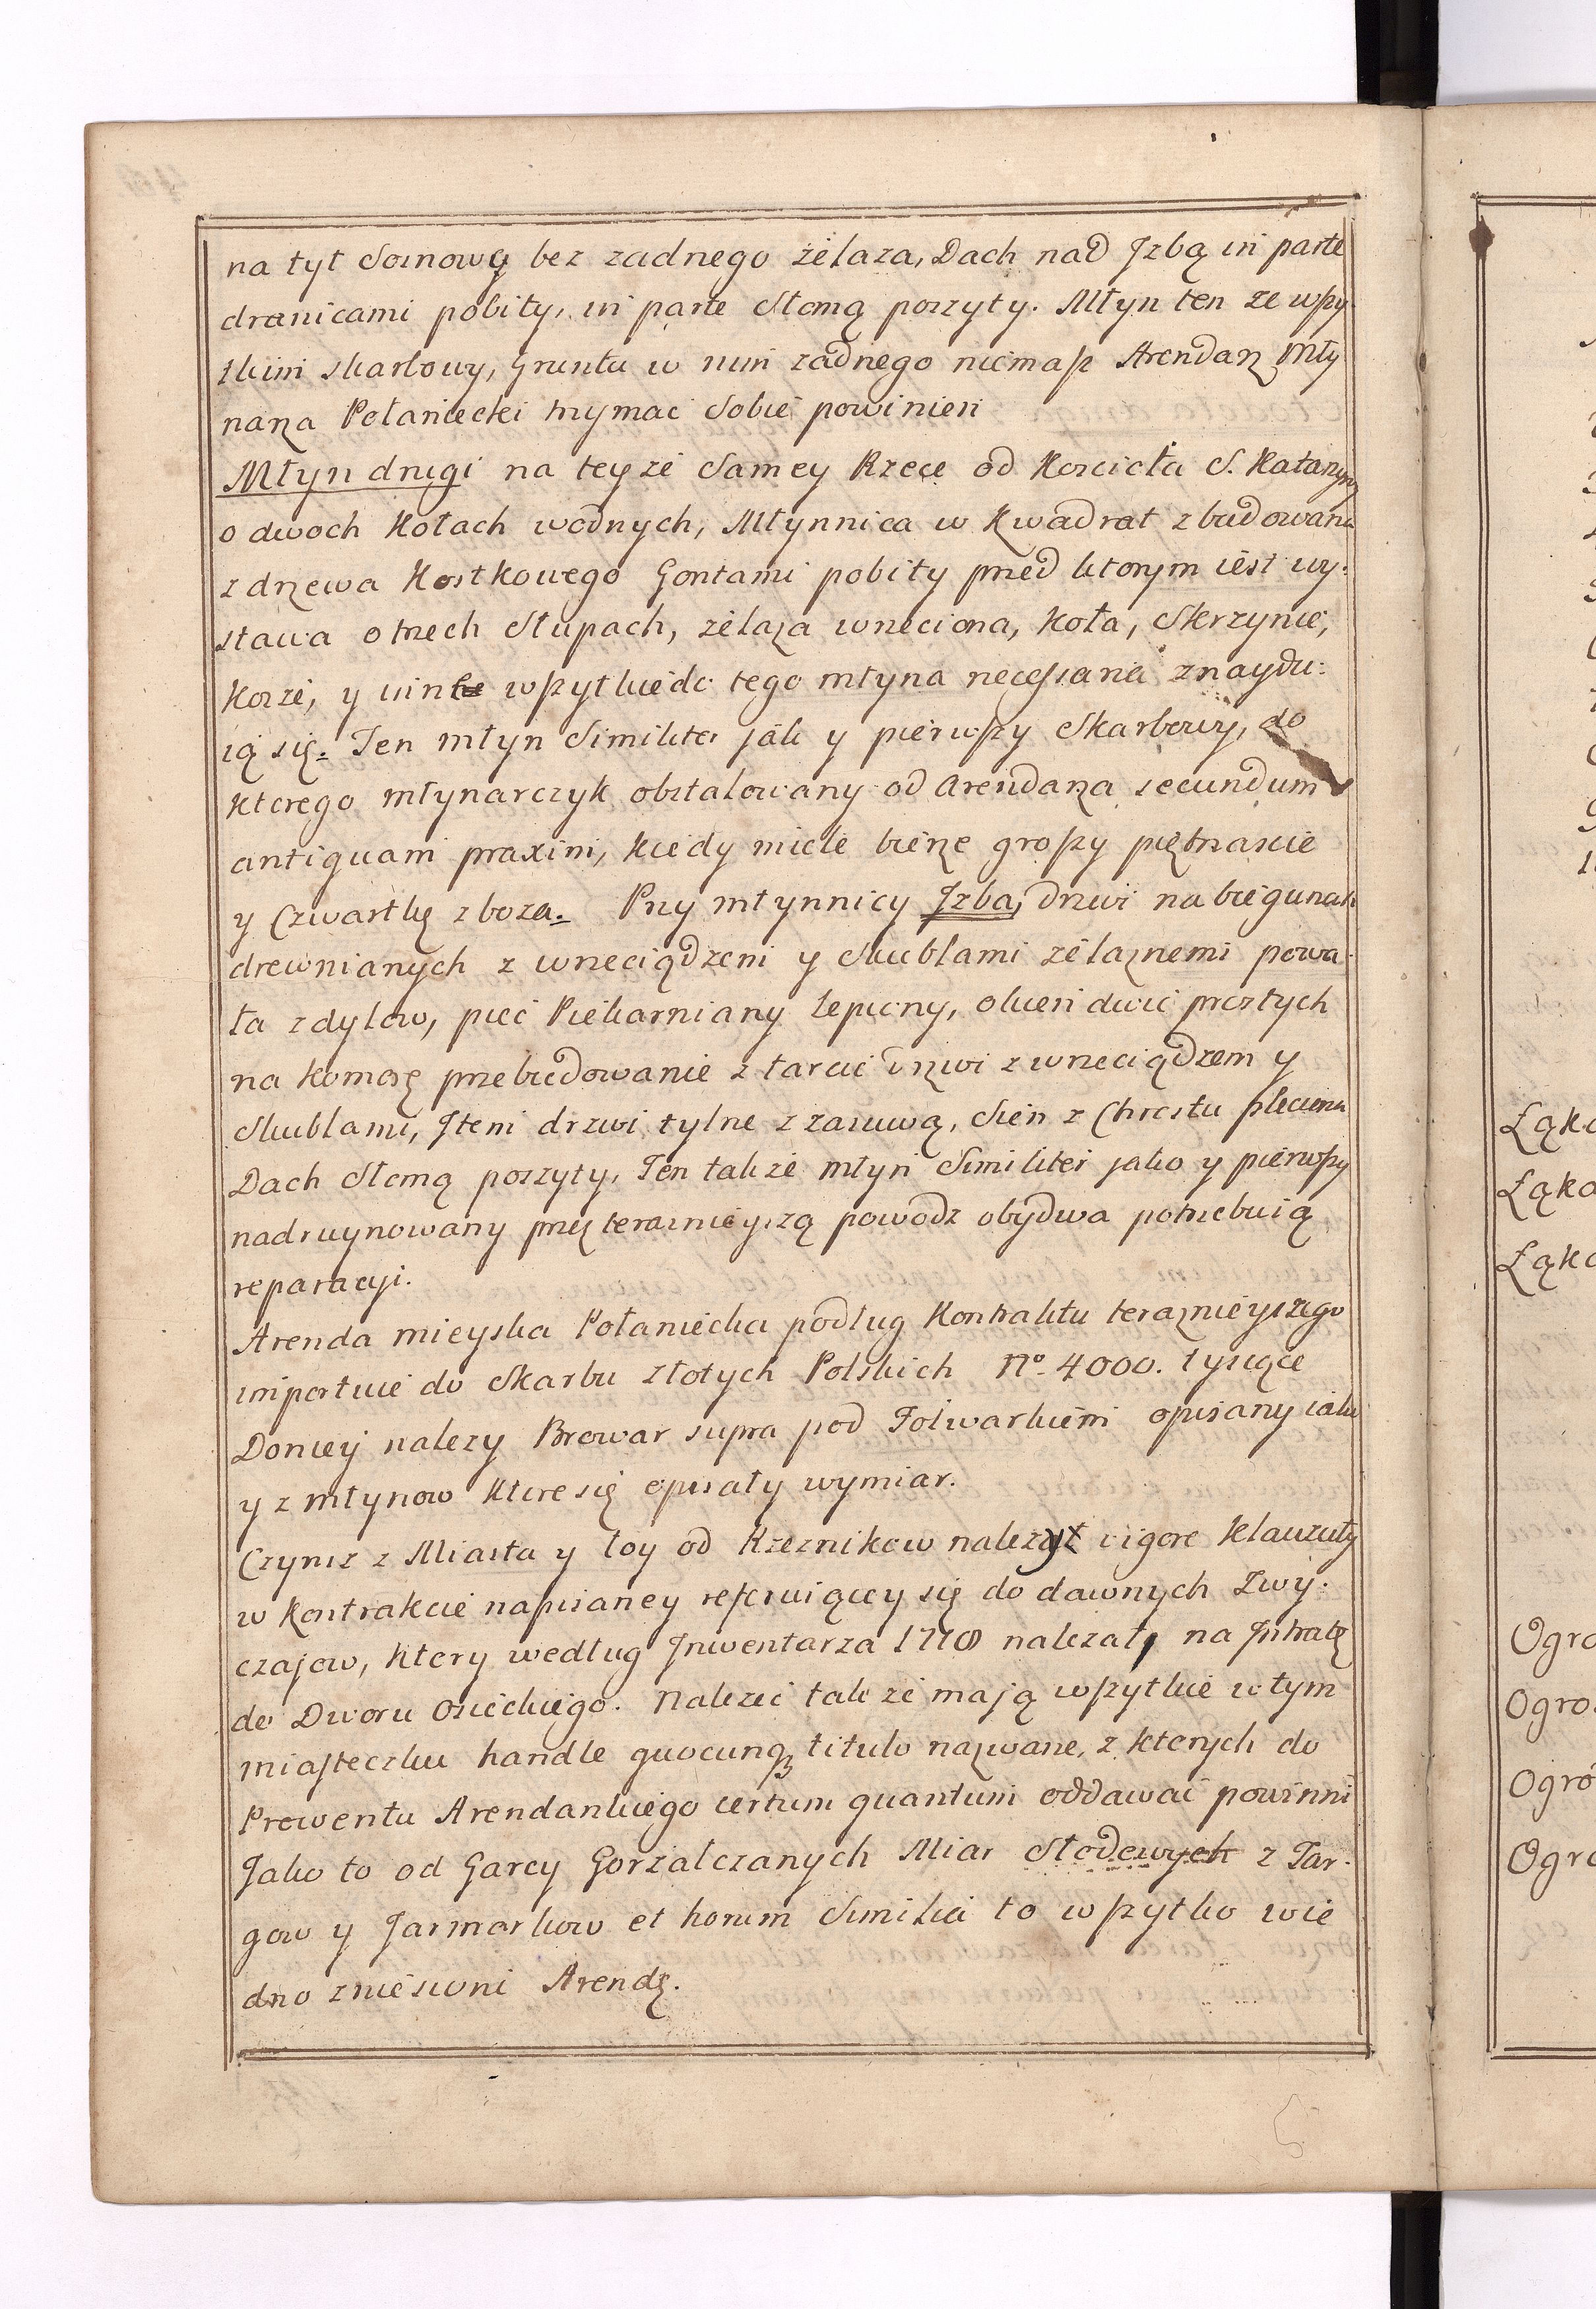 na tył Sosnowy bez zadnego żelaza, Dach nad Jzbą in parte
dranicami pobity, in parte Słomą poszyty. Młyn ten ze wszy-
stkim skarbowy, Gruntu w nim zadnego niemasz Arendarz Mły
narza Połaniecki trzymac Sobie powinien
Młyn drugi na teyze Samey Rzece od Koscioła S. Katarzyny
o dwoch Kołach wodnych, Młynnica w Kwadrat zbudowana
z drzewa Kostkowego Gontami pobity przed ktorym iest wy-
stawa o trzech Słupach, żelaza wrzeciona, Koła, Skrzynie,
Kosze, y inne wszytkie do tego młyna necessaria znaydu:
ią się. Ten młyn Similiter jak y pierwszy Skarbowy, do
ktorego młynarczyk obstalowany od Arendarza secundum
antiquam praxim, Kiedy miele bierze groszy piętnascie
y Czwartkę zboza. Przy młynnicy Jzba, drzwi na biegunach
drewnianych z wrzeciądzem y Skublami żelaznemi powa-
ła z dylow, piec Piekarniany Lepiony, okien dwie prostych
na Komorę przebudowanie z tarcic drzwi z wrzeciądzem y
Skublami, Jtem drzwi tylne z zasuwą, Sien z Chrostu pleciona
Dach Słomą poszyty, Ten takze młyn Similiter jako y pierwszy
nadruynowany przez teraznieyszą powodz obydwa potrzebuią
reparacyi.
Arenda mieyska Połaniecka podług Kontraktu teraznieyszego
importuie do Skarbu złotych Polskich No. 4000. tysiące
Do niey nalezy Browar supra pod Folwarkiem opisany iako
y z młynow Ktore się opisały wymiar.
Czynsz z Miasta y łoy od Rzeznikow nalezył vigore Klauzuły
w Kontrakcie napisaney referuiącey się do dawnych Zwy-
czajow, Ktory według Jnwentarza 1778 nalezał, na Jntratę
do Dworu Osieckiego. Nalezec takze mają wszytkie w tym
miasteczku handle quocunq titulo nazwane, z Ktorych do
Prowentu Arendarskiego certum quantum oddawać powinni
Jako to od Garcy Gorzałczanych Miar Słodowych z Tar-
gow y Jarmarkow et horum Similia to wszytko wie
dno zniesioni Arendę.
Łąka
Łąka
Łąka
Ogro
Ogro
Ogró
Ogro